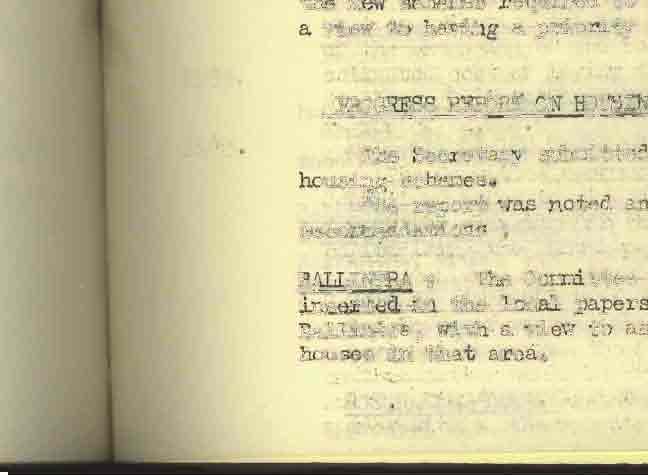 the new schemes required to
a view to having a priority
PROGRESS REPORT ON HOUSING
The Secretary submitted
housing schemes.
The report was noted an
recommendations
BALLINTRA : The Committee
inserted in the local papers
Ballintra, with a view to as
houses in that area.